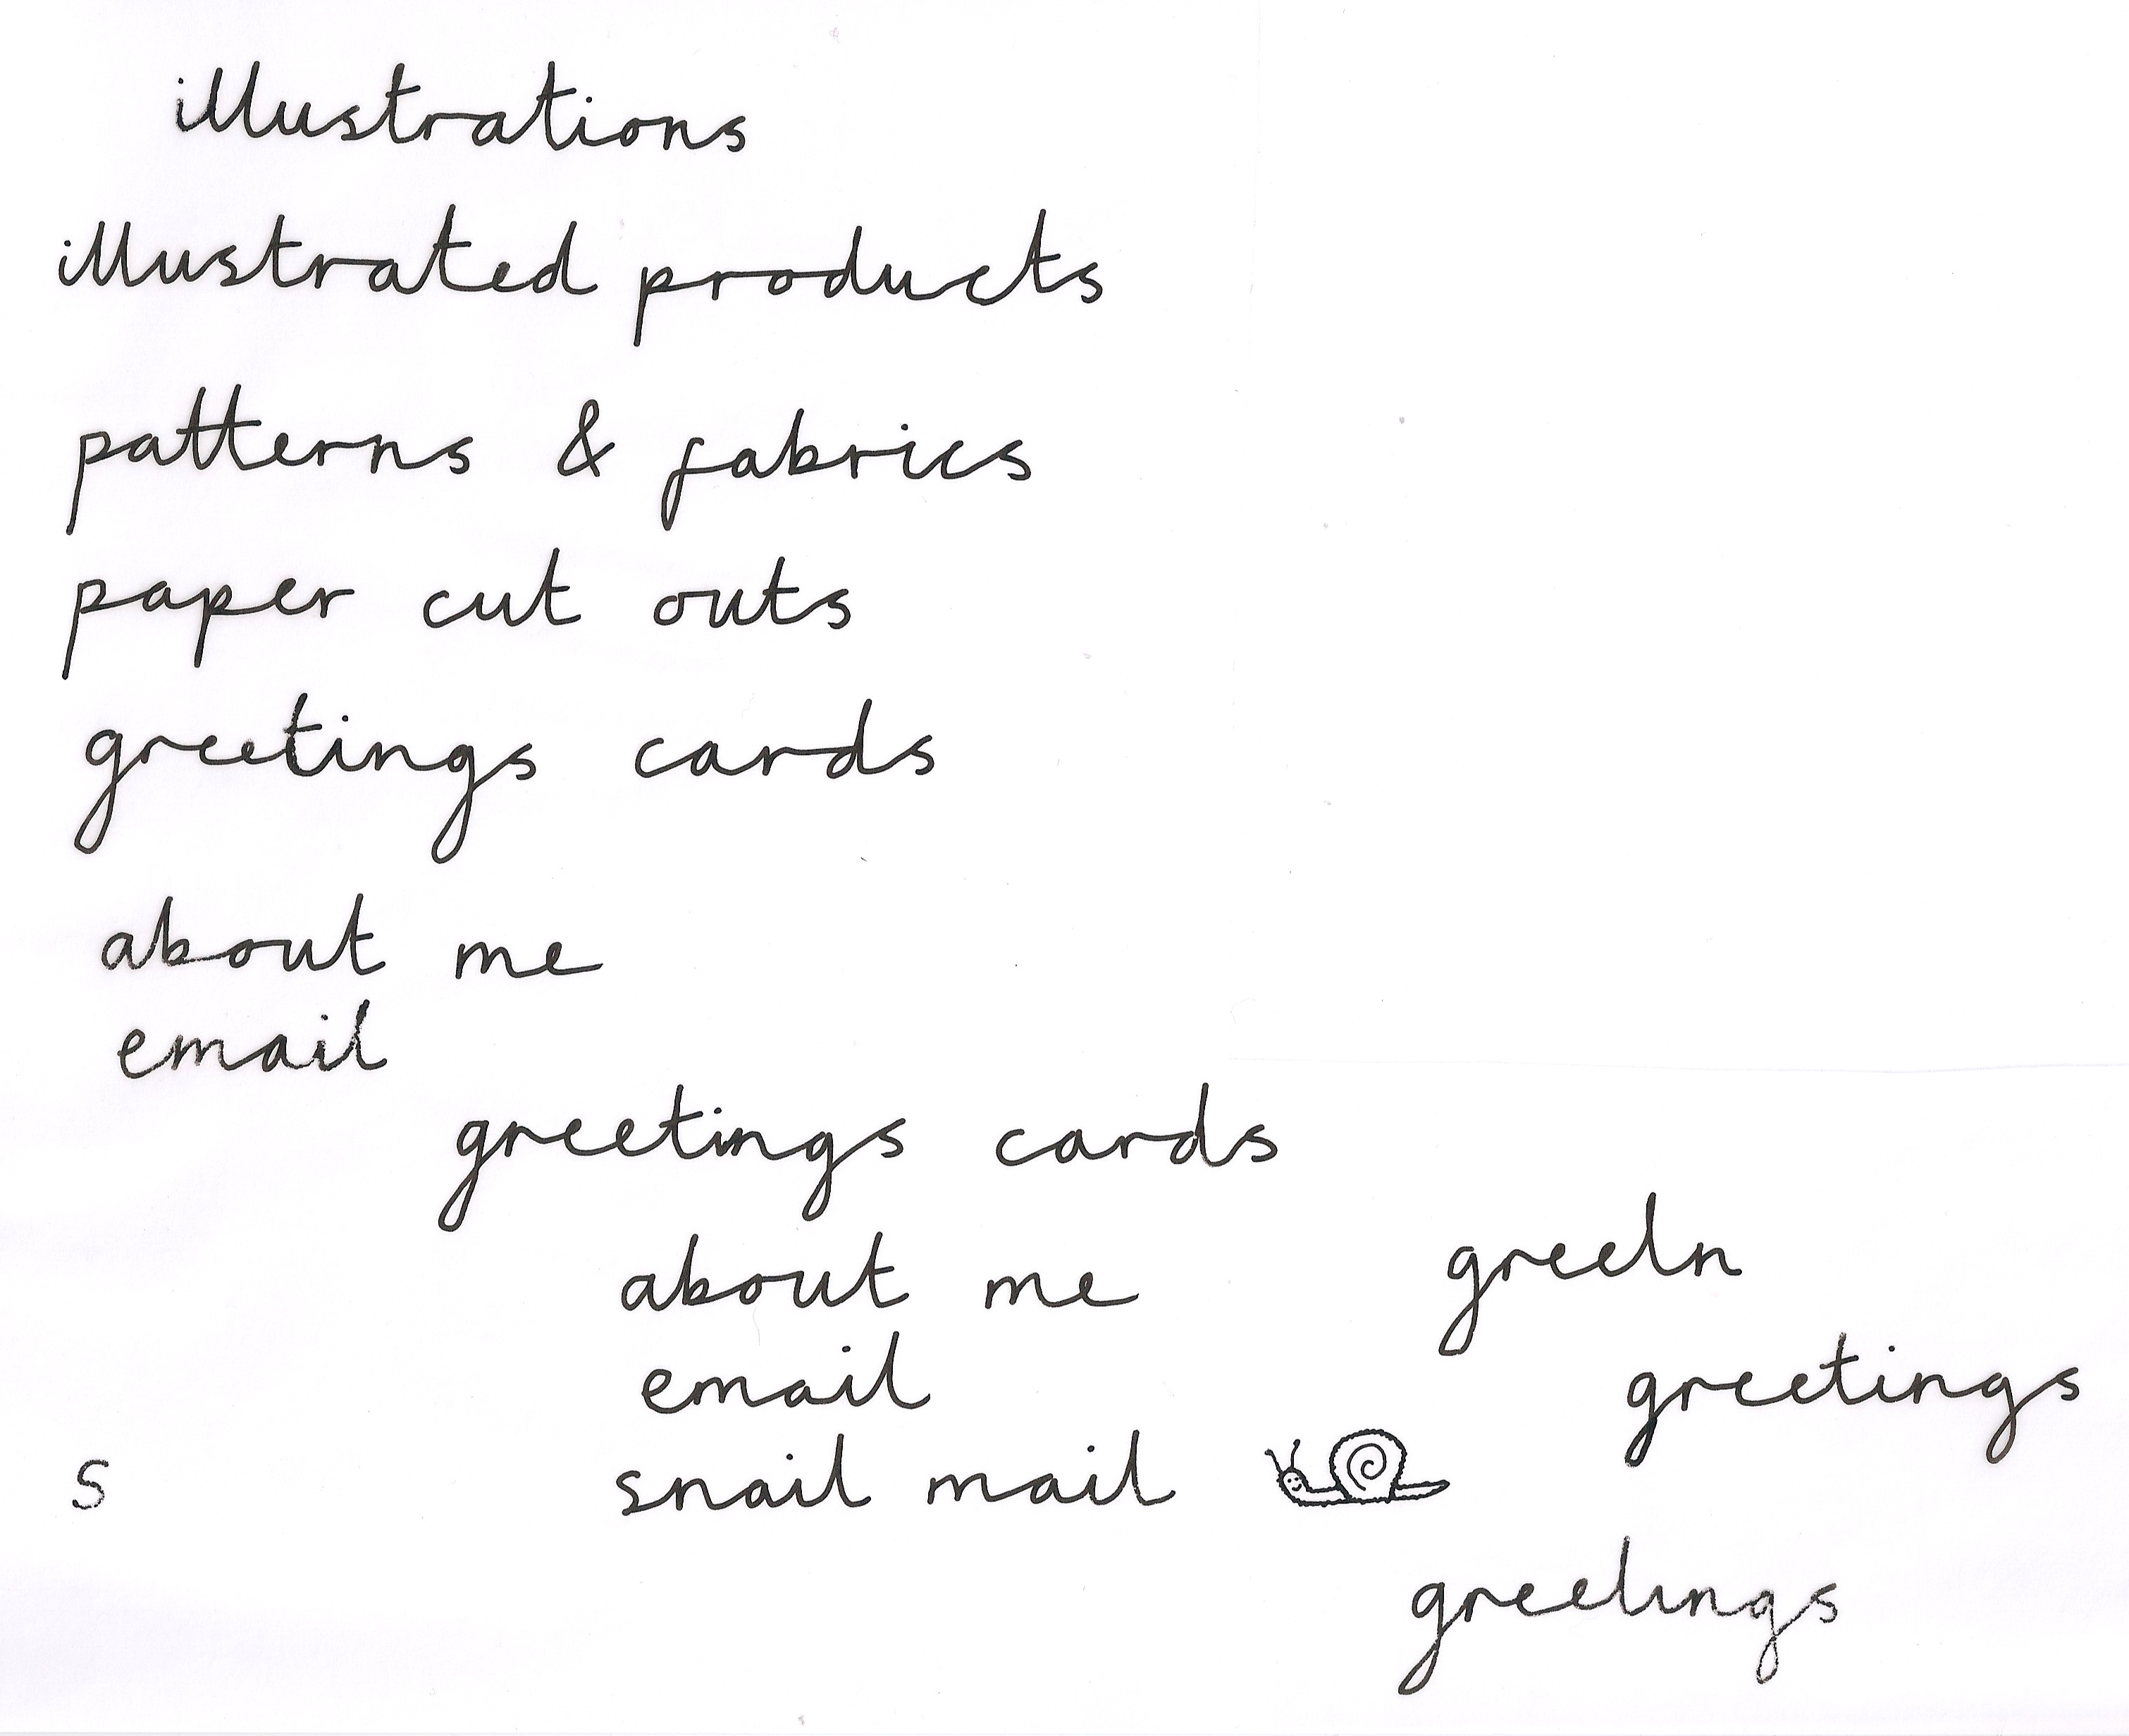 illustrations
illustrated products
patterns & fabrics
paper cut outs
greetings cards
about me
email
greetings cards
about me
greeln
email
greetings
s
snail mail
greelings